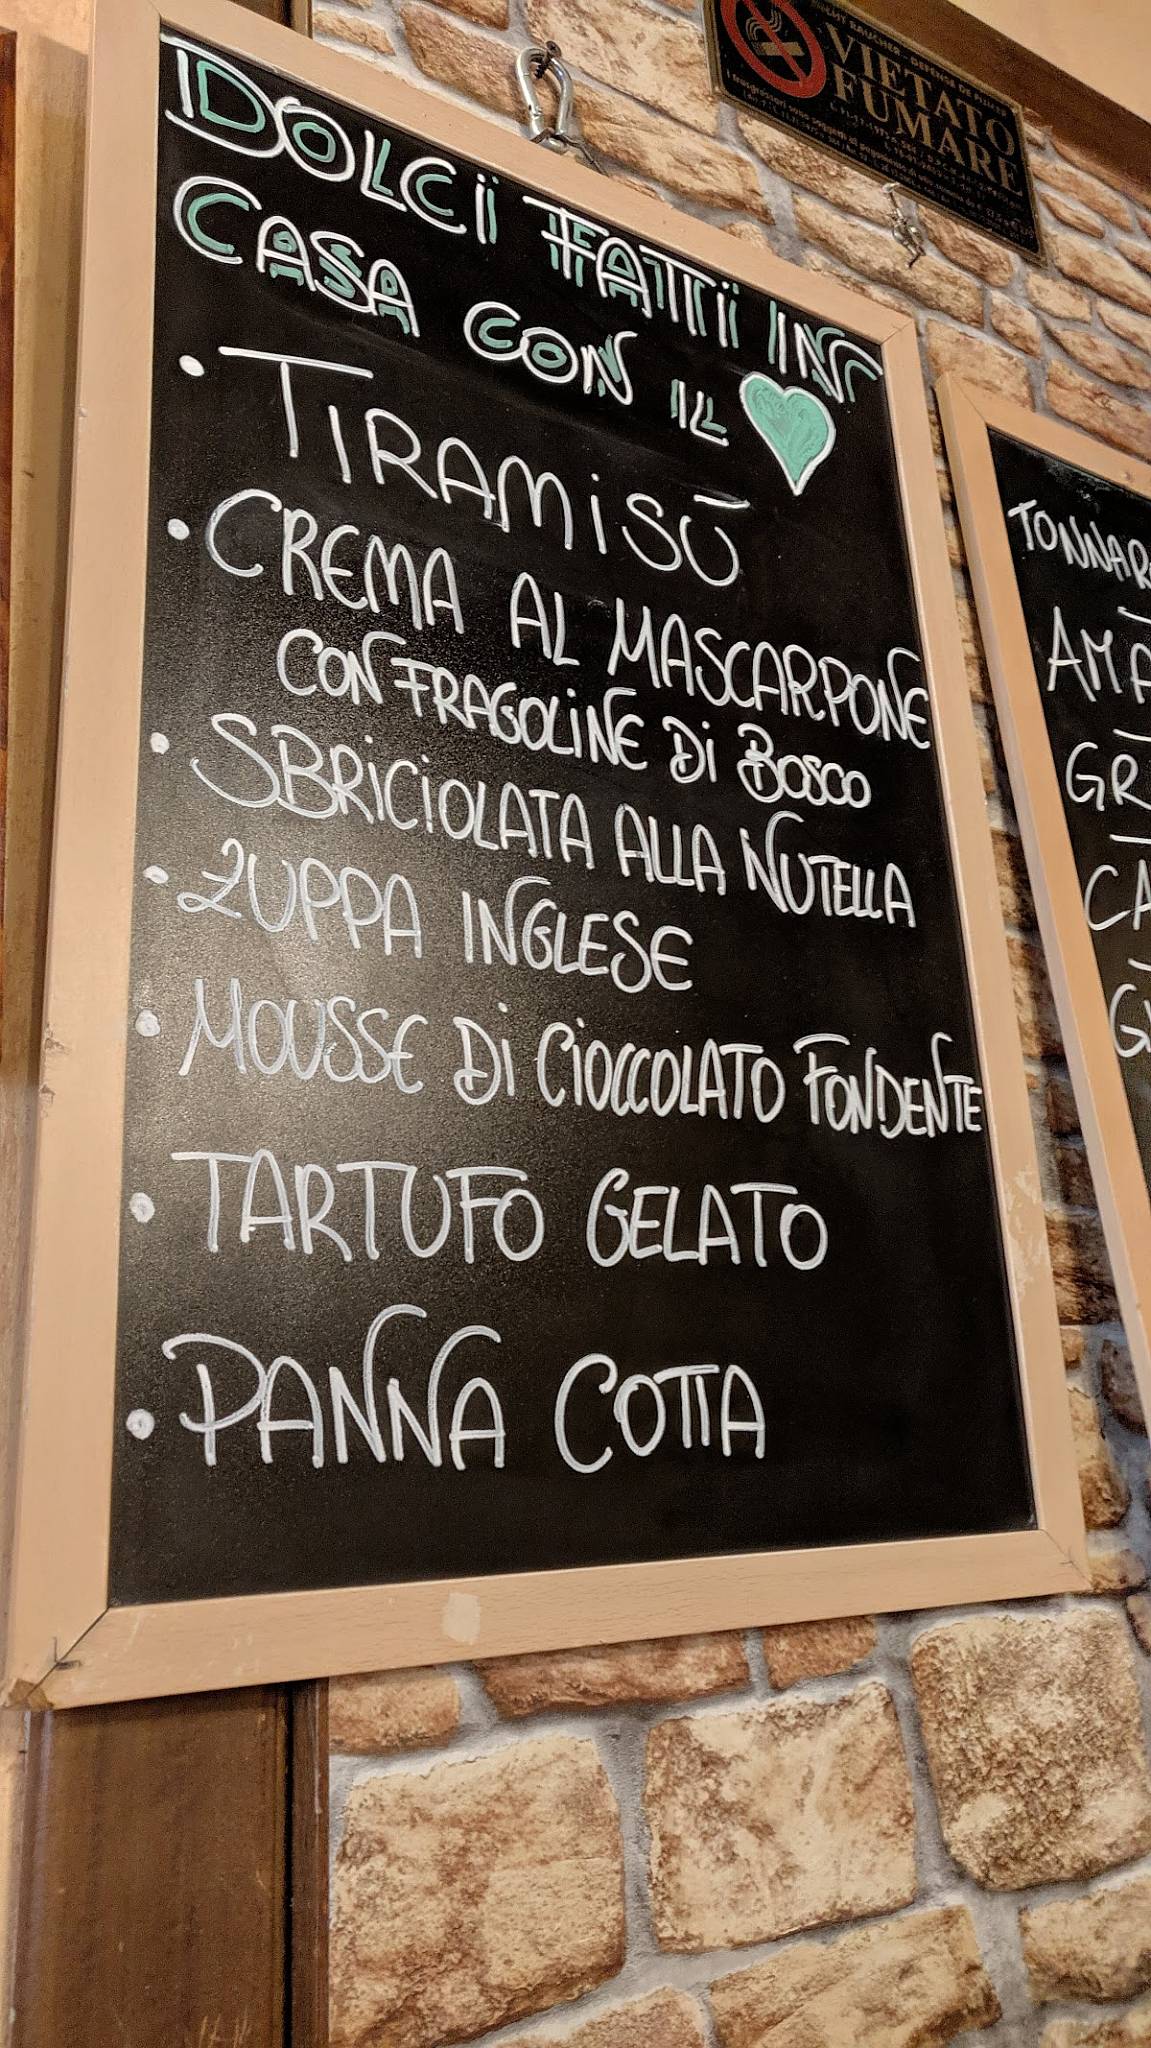 VIETATO
FUMARE
DOLCI FATTI IN
CASA CON IL
• TIRAMISÙ
• CREMA AL MASCARPONE
CON FRAGOLINE DI BOSCO
• SBRICIOLATA ALLA NUTELLA
• ZUPPA INGLESE
• MOUSSE DI CIOCCOLATO FONDENTE
• TARTUFO GELATO
• PANNA COTTA
TONNAR
AMA
GR
CA